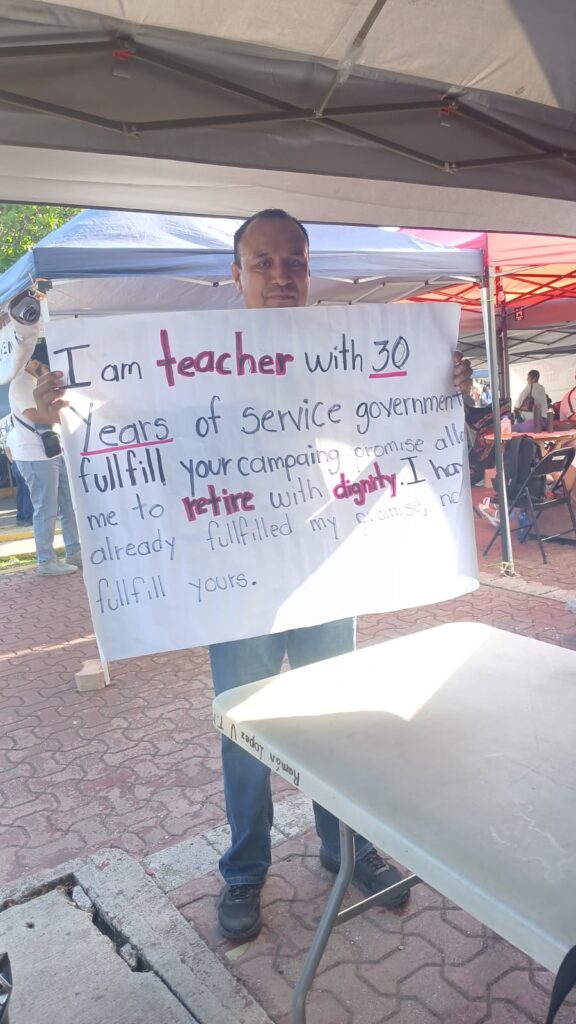 I am teacher with 30
Years of service government
fullfill your campaing promise
me to retire with dignity. I
already fullfilled my promise,
fullfill yours.
Ramón Lopez V.